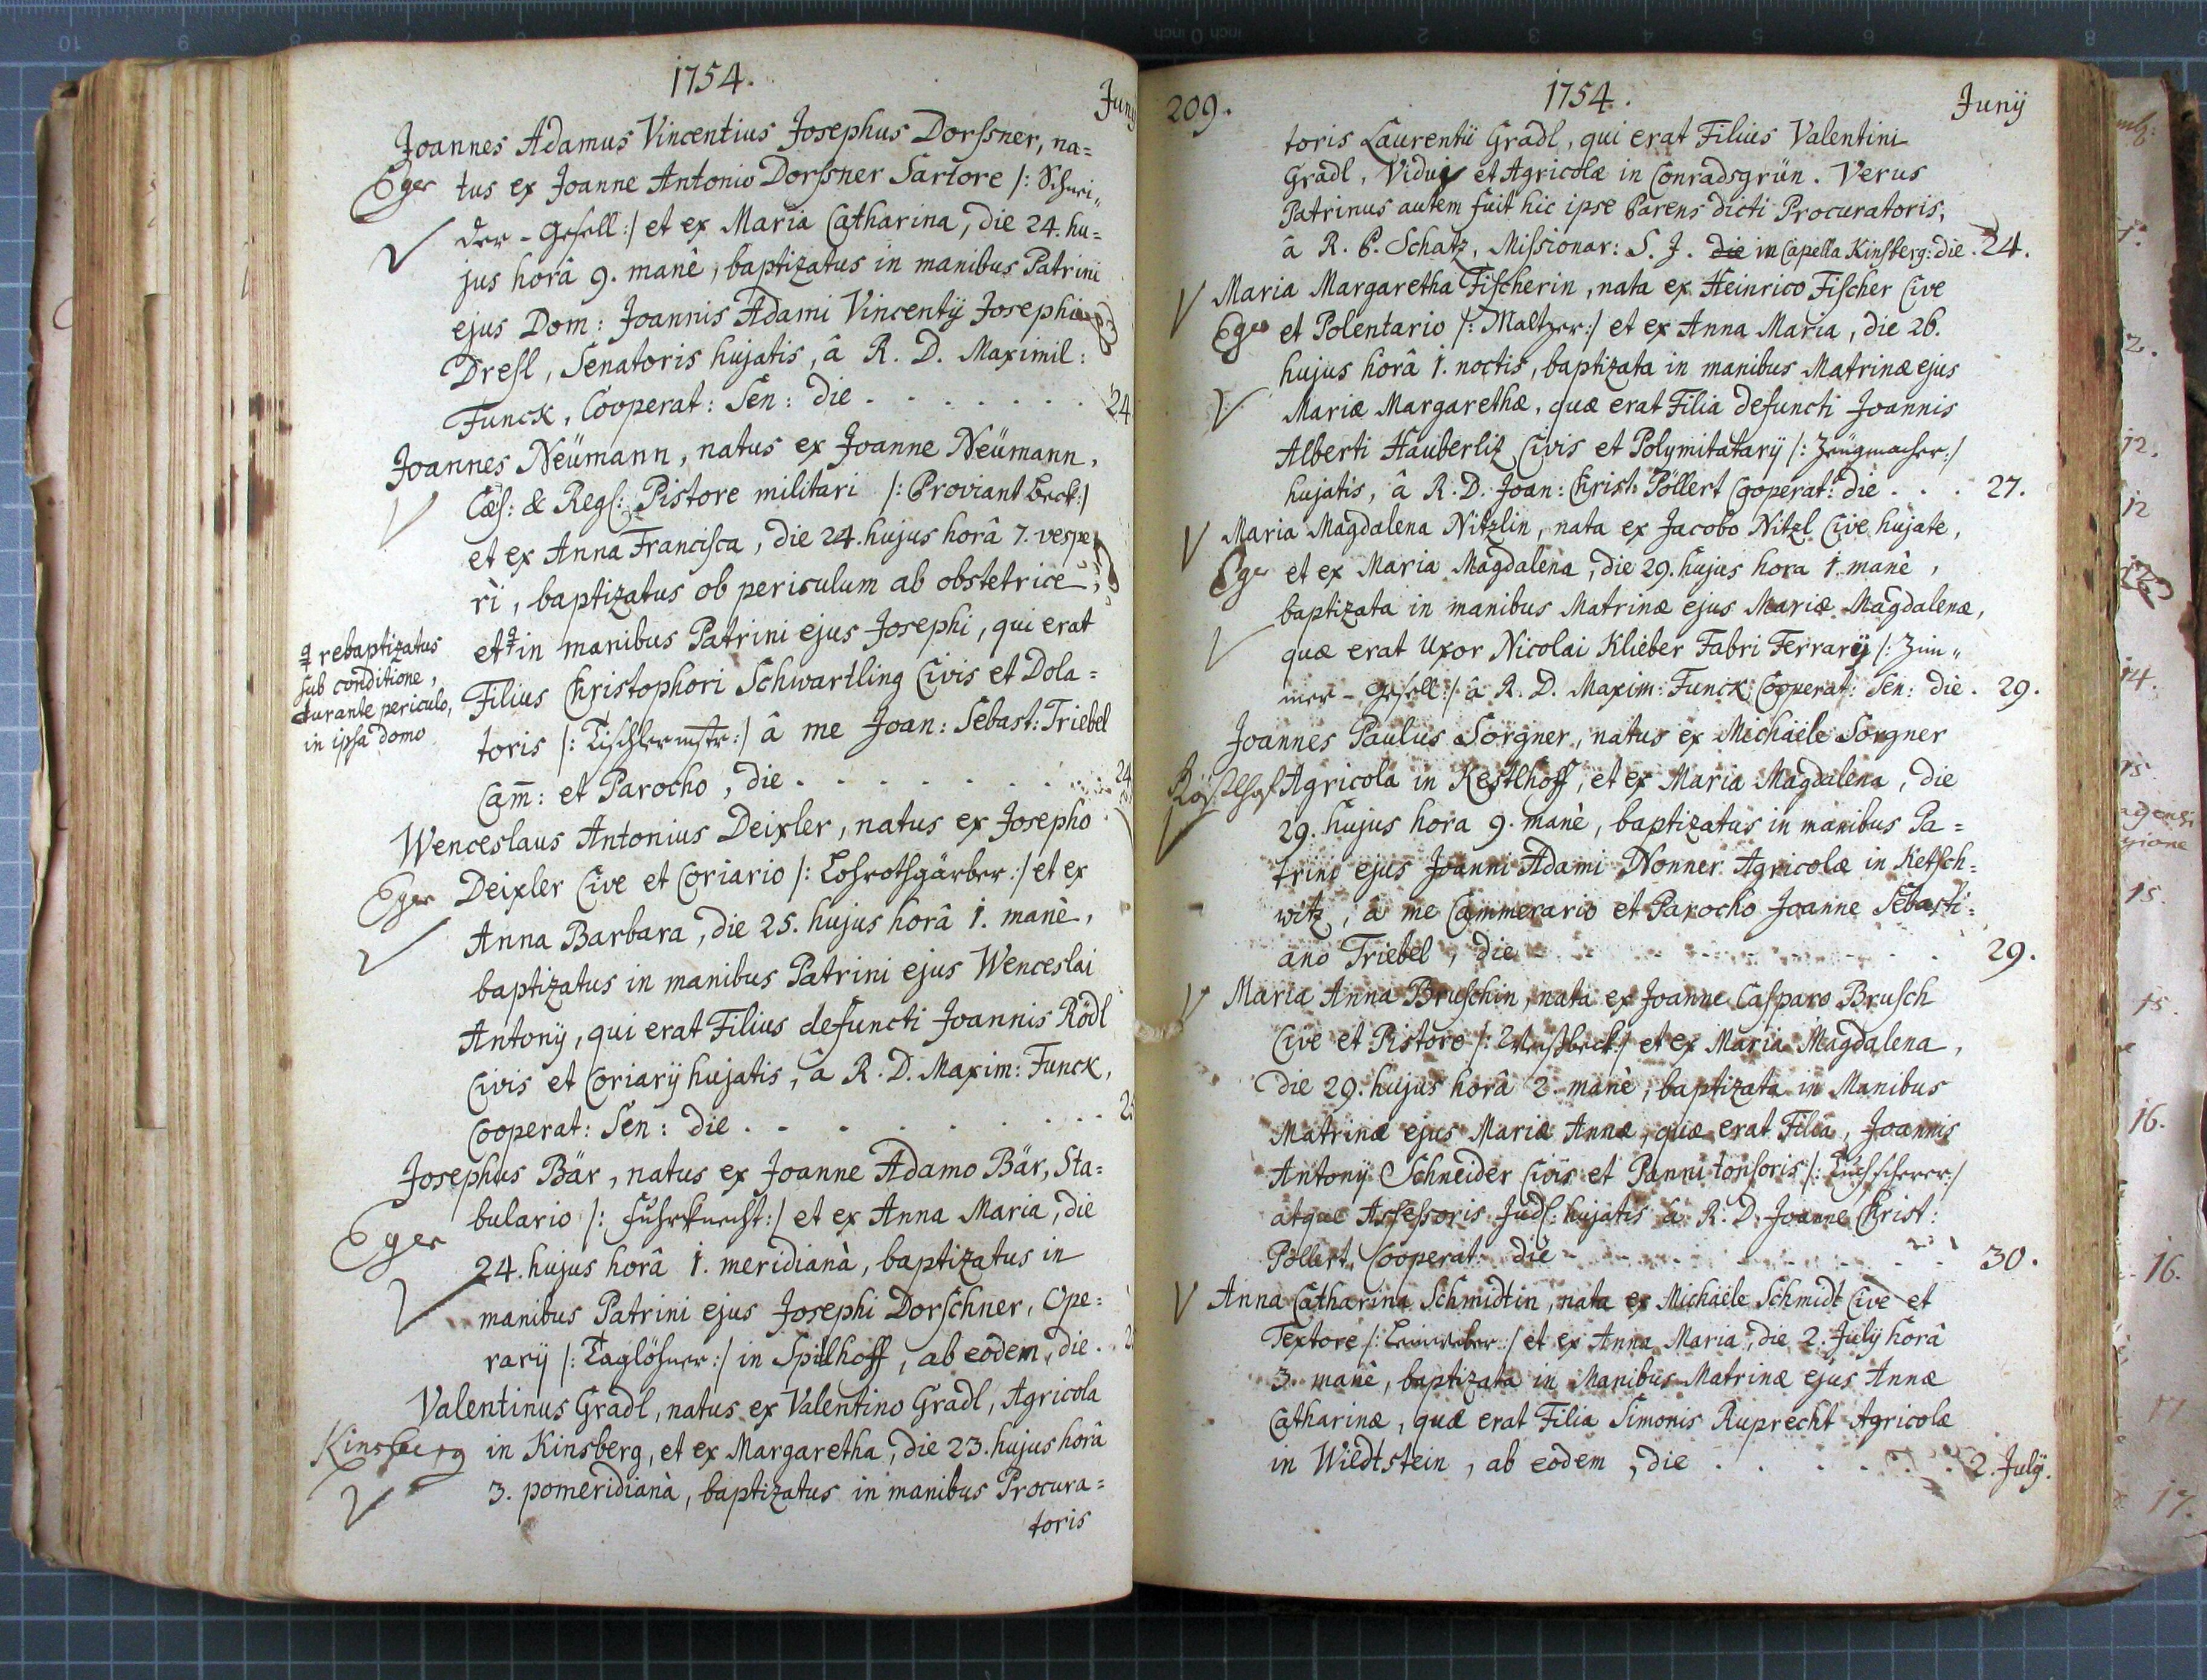 1754.
Juny
Joannes Adamus Vincentius Josephus Dorssner, na=
Eger
tus ex Joanne Antonio Dorssner Sartore /: Schnei„
der-Gesell :/ et ex Maria Catharina, die 24. hu=
jus horâ 9. manè, baptizatus in manibus Patrini
ejus Dom: Joannis Adami Vincentÿ Josephi
Dresl, Senatoris hujatis, â R. D. Maximil:
Funck, Cooperat: Sen: die . . . . . . . 24
Joannes Neümann, natus ex Joanne Neümann,
Cæs: & Regs: Pistore militari /: Proviant beck :/
et ex Anna Francisca, die 24. hujus horâ 7. vespe
rì, baptizatus ob periculum ab obstetrice,
et in manibus Patrini ejus Josephi, qui erat
rebaptizatus
sub conditione,
durante periculo,
in ipsa domo
Filius Christophori Schwartling Civis et Dola=
toris /: Tischlermstr :/ â me Joan: Sebast: Triebel
Cam̄: et Parocho, die . . . . . . . 24
Wenceslaus Antonius Deixler, natus ex Josepho
Eger
Deixler Cive et Coriario /: Lohrothgärber :/ et ex
Anna Barbara, die 25. hujus horâ 1. manè,
baptizatus in manibus Patrini ejus Wenceslai
Antonÿ, qui erat Filius defuncti Joannis Rödl
Civis et Coriarÿ hujatis, â R. D. Maxim: Funck,
Cooperat: Sen: die . . . . . . . 2
Josephus Bär, natus ex Joanne Adamo Bär, Sta=
Eger
bulario /: Fuhrknecht :/ et ex Anna Maria, die
24. hujus horâ 1. meridianà, baptizatus in
manibus Patrini ejus Josephi Dorschner, Ope=
rarÿ /: Taglöhner :/ in Spitlhoff, ab eodem, die . . 2
Valentinus Gradl, natus ex Valentino Gradl, Agricola
Kinsberg
in Kinsberg, et ex Margaretha, die 23. hujus horâ
3. pomeridianà, baptizatus in manibus Procura=
toris
209.
1754.
Junÿ
toris Laurentii Gradl, qui erat Filius Valentini
Gradl, Vidui et Agricolæ in Conradsgrün. Verus
Patrinus autem fuit hic ipse Parens dicti Procuratoris,
â R. P. Schatz, Missionar: S. J. die in Capella Kinsberg: die . 24.
Maria Margaretha Fischerin, nata ex Heinrico Fischer Cive
Eger
et Polentario /: Maltzer :/ et ex Anna Maria, die 26.
hujus horâ 1. noctis, baptizata in manibus Matrinæ ejus
Mariæ Margarethæ, quæ erat Filia defuncti Joannis
Alberti Hauberliz Civis et Polymitatarÿ /: Zeugmacher :/
hujatis, â R. D. Joan: Christ: Pöllert Cooperat: die . . . 27.
Maria Magdalena Nitzlin, nata ex Jacobo Nitzl Cive hujate,
Eger
et ex Maria Magdalena, die 29. hujus hora 1. manè,
baptizata in manibus Matrinæ ejus Mariæ Magdalenæ,
quæ erat Uxor Nicolai Klieber Fabri Ferrarÿ /: Zim„
mer-Gesell :/ â R. D. Maxim: Funck Cooperat: Sen: die . 29.
Joannes Paulus Sorgner, natus ex Michaële Sorgner
Agricola in Kestlhoff, et ex Maria Magdalena, die
29. hujus hora 9. manè, baptizatus in manibus Pa=
trini ejus Joanni Adami Nonner Agricolæ in Ketsch=
witz, â me Cammerario et Parocho Joanne Sebasti=
ano Triebel, die . . . . . . . 29.
Maria Anna Bruschin, nata ex Joanne Casparo Brusch
Cive et Pistore /: Weißbeck :/ et ex Maria Magdalena,
die 29. hujus horâ 2. manè, baptizata in Manibus
Matrinæ ejus Mariæ Annæ, quæ erat Filia, Joannis
Antonÿ Schneider Civis et Panni tonsoris /: Tuchscherer :/
atque Assessoris Judl: hujatis â R. D. Joanne Christ:
Pöllert Cooperat: die . . . . . . . 30.
Anna Catharina Schmidtin, nata ex Michaële Schmidt Cive et
Textore /: Leinweber :/ et ex Anna Maria, die 2. Julÿ horâ
3. manè, baptizata in Manibus Matrinæ ejus Annæ
Catharinæ, quæ erat Filia Simonis Ruprecht Agricolæ
in Wildtstein, ab eodem, die . . . . . . 2. Julÿ.